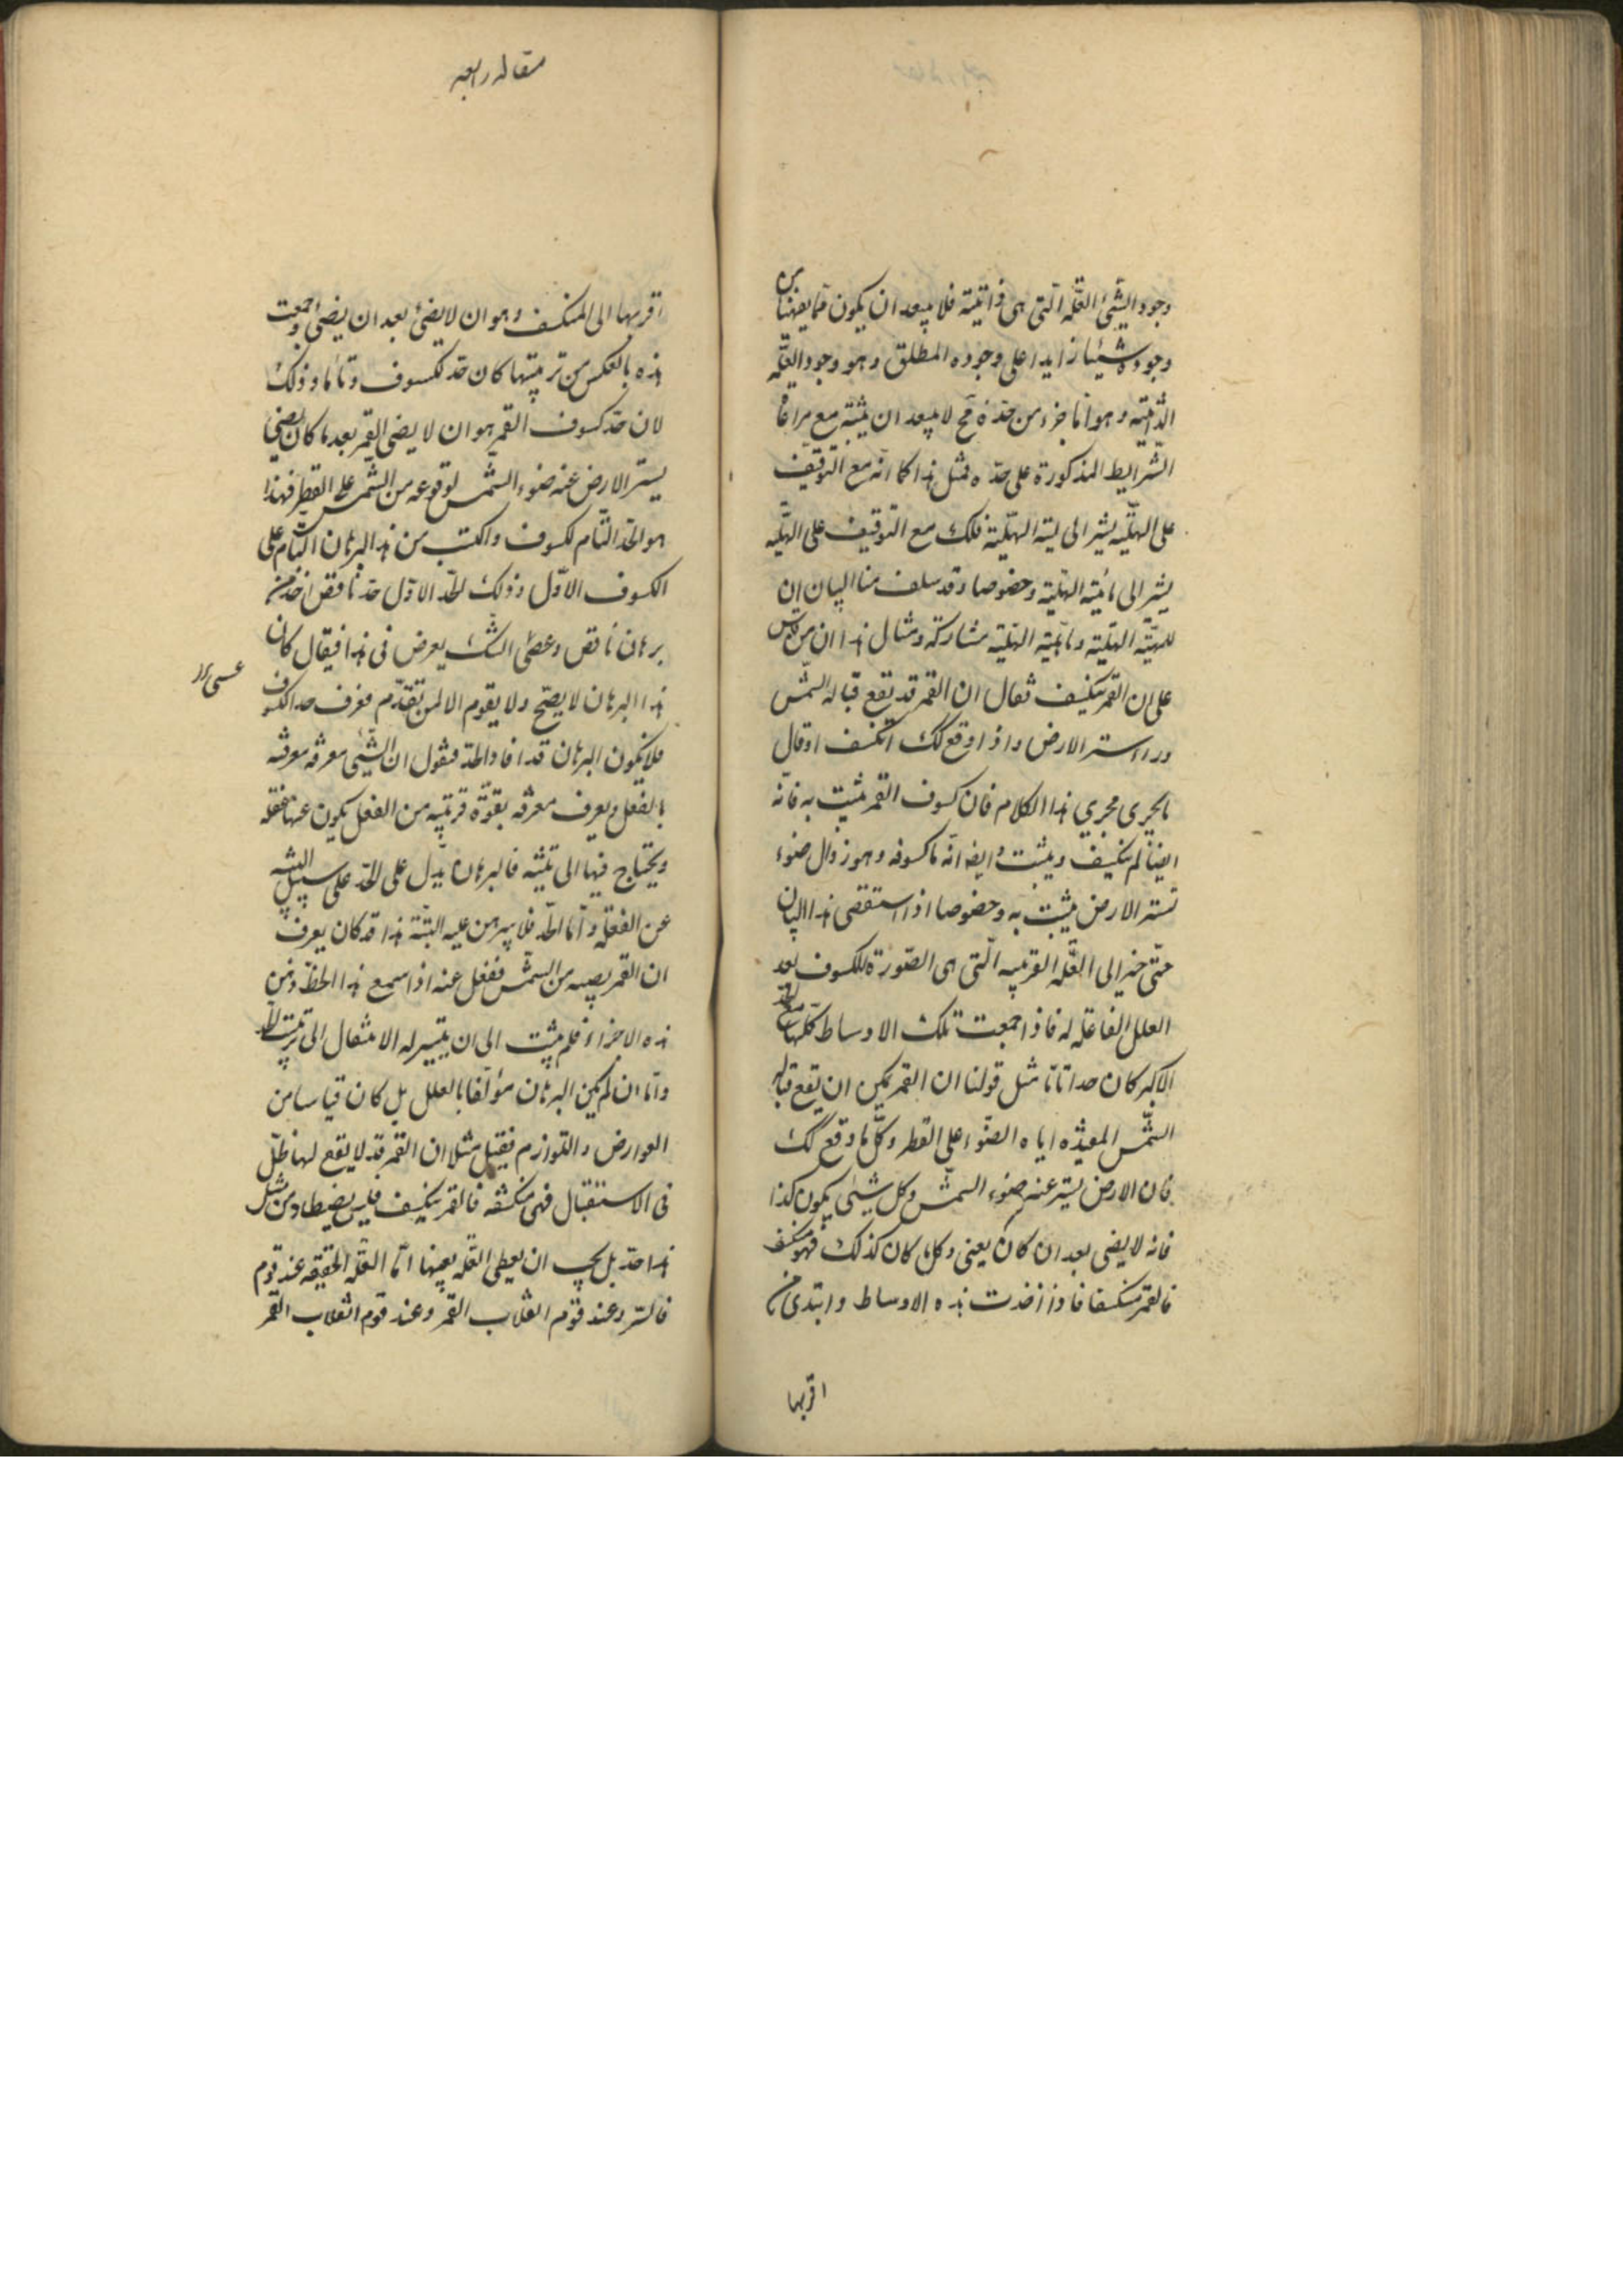 وجود الشئ العلّة الّتى هى ذاتيّة فلا يبعد ان يكون مما يفهمنا من
وجوده شيئا زايدا على وجوده المطلق و هو وجود العلّة
الذاتيّة و هو اما جزء من حدّه فح لا يبعد ان يثبته مع مراعاة
الشرايط المذكورة على حدّه فمثل هذا كما انّه مع التوقيف
على الهليّة يشير الى لميّة الهليّة فلك مع التوقيف على الهليّة
يشير الى مائيّة الهليّة و خصوصا و قد سلف منا البيان ان
للميّة الهليّة و مائيّة الهليّة مشاركة و مثال هذا ان من قاس
على ان القمر ينكسف فقال ان القمر قد يقع قبالة الشمس
وراء ستر الارض و اذا وقع كك انكسف او قال
ما يجرى مجرى هذا الكلام فان كسوف القمر يثبت به فانه
ايضا لم ينكسف و يثبت ايضا انه ما كسوفه و هو زوال ضوء
تستر الارض يثبت به و خصوصا اذا استقصى هذا البيان
حتى الى العلّة القريبه الّتى هى الصّورة للكسوف بعد
العلل الفاعله له فاذا جمعت تلك الاوساط كلها مع الحد
الاكبر كان حدا تاما مثل قولنا ان القمر يمكن ان يقع قباله
الشمس المفيدة اياه الضوء على القطر و كل ما وقع كك
فان الارض يستر عنه ضوء الشمس و كل شئ يكون كذا
فانه لا يضى بعد ان كان يعنى و كل ما كان كذلك فهو منكسف
فالقمر منكسفا فاذا اخذت هذه الاوساط و ابتدى من
اقربها
مقاله رابعه
اقربها الى المنكسف و هو ان لا يضئ بعد ان يضئ و جمعت
هذه بالعكس من ترتيبها كان حد لكسوف و تاما و ذلك
لان حد كسوف القمر هو ان لا يضى القمر بعد ما كان يضى
يستر الارض عنه ضوء الشمس لوقوعه من الشمس على القطر فهذا
هو الحدّ التام لكسوف و اكتسب من هذا البرهان التام على
الكسوف الاوّل و ذلك الحدّ الاوّل حد ناقص اخذ من
برهان ناقص و عصى الشك يعرض فى هذا فيقال كان
عسى
هذا البرهان لا يصح و لا يقوم الا لمن تقدّم فعرف حد الكسوف
فلا يكون البرهان قد افاد الحد فنقول ان الشئ معرفه معرفه
بالفعل و يعرف معرفه بقوّة قريبه من الفعل يكون عنها غفله
و يحتاج فيها الى تنبيه فالبرهان يدل على الحدّ على سبيل التنبيه
عن الغفله و اما الحدّ فلا يبرهن عليه البتّة هذا قد كان يعرف
ان القمر يصيبه من الشمس فغفل عنه اذا سمع هذا لحظ ذهن
هذه الاجزاء فلم يثبت الى ان يتيسر له الانتقال الى ترتيب الحد
و اما ان لم يكن البرهان مؤلفا بالعلل بل كان قياسا من
العوارض و اللوازم فقيل مثلا ان القمر قد لا يقع لهنا ظلّ
فى الاستقبال فهى منكسفه فالقمر ينكسف فليس يضبط اوس مثل
هذا حد بل يجب ان يعطى العلّه بعينها اما العلّه الحقيقه عند قوم
فالستر و عند قوم انقلاب القمر و عند قوم انقلاب القمر